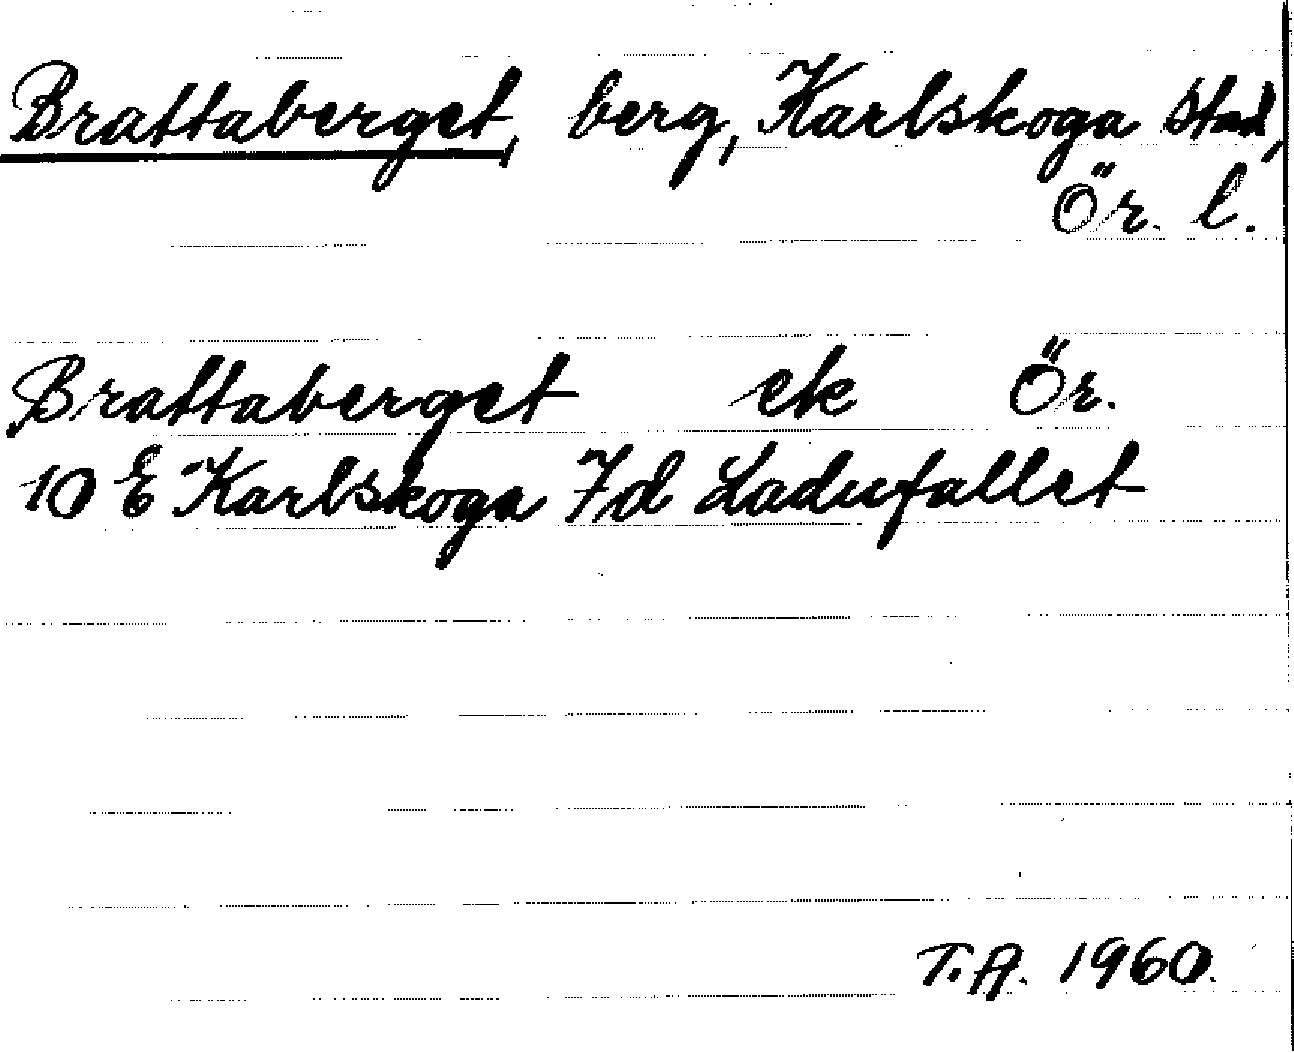 Brattaberget, berg, Karlskoga stad,
Ör. l.
Brattaberget ek Ör.
10 E Karlskoga 7d Ladufallet
T.A. 1960.